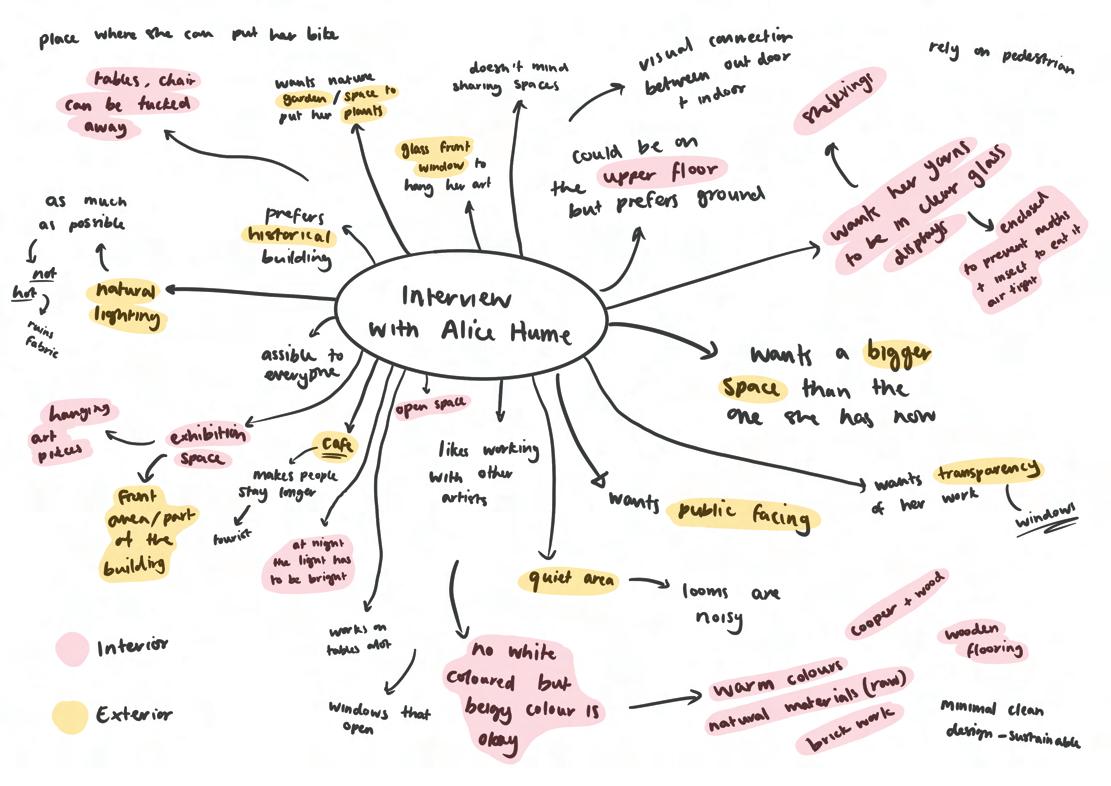 place where she can put her bike
tables, chair
can be tucked
away
wants nature
garden / space to
put her plants
doesn't mind
sharing spaces
visual connection
between outdoor
+ indoor
rely on pedestrian
glass front
window to
hang her art
could be on
the upper floor
but prefers ground
shelvings
wants her yarns
to be in clear glass
displays
enclosed
to prevent moths
+ insect to eat it
air tight
as much
as possible
not
hot
ruins
fabric
natural
lighting
prefers
historical
building
Interview
with Alice Hume
assible to
everyone
wants a bigger
space than the
one she has now
open space
hanging
art
pieces
exhibition
space
front
area/part
of the
building
cafe
makes people
stay longer
tourist
at night
the light has
to be bright
likes working
with other
artists
wants public facing
wants transparency
of her work
windows
quiet area
looms are
noisy
works on
tables alot
windows that
open
no white
coloured but
beigy colour is
okay
cooper + wood
warm colours
natural materials (raw)
brick work
wooden
flooring
minimal clean
design - sustainable
Interior
Exterior